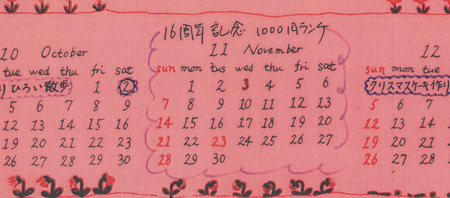 10 October
tue wed thu fri sat
りひろい散歩 1 2
5 6 7 8 9
12 13 14 15 16
19 20 21 22 23
26 27 28 29 30
16周年記念 1000円ランチ
11 November
sun mon tue wed thu fri sat
1 2 3 4 5 6
7 8 9 10 11 12 13
14 15 16 17 18 19 20
21 22 23 24 25 26 27
28 29 30
12
sun mon tue
クリスマスケーキ作り
5 6 7
12 13 14
19 20 21
26 27 28